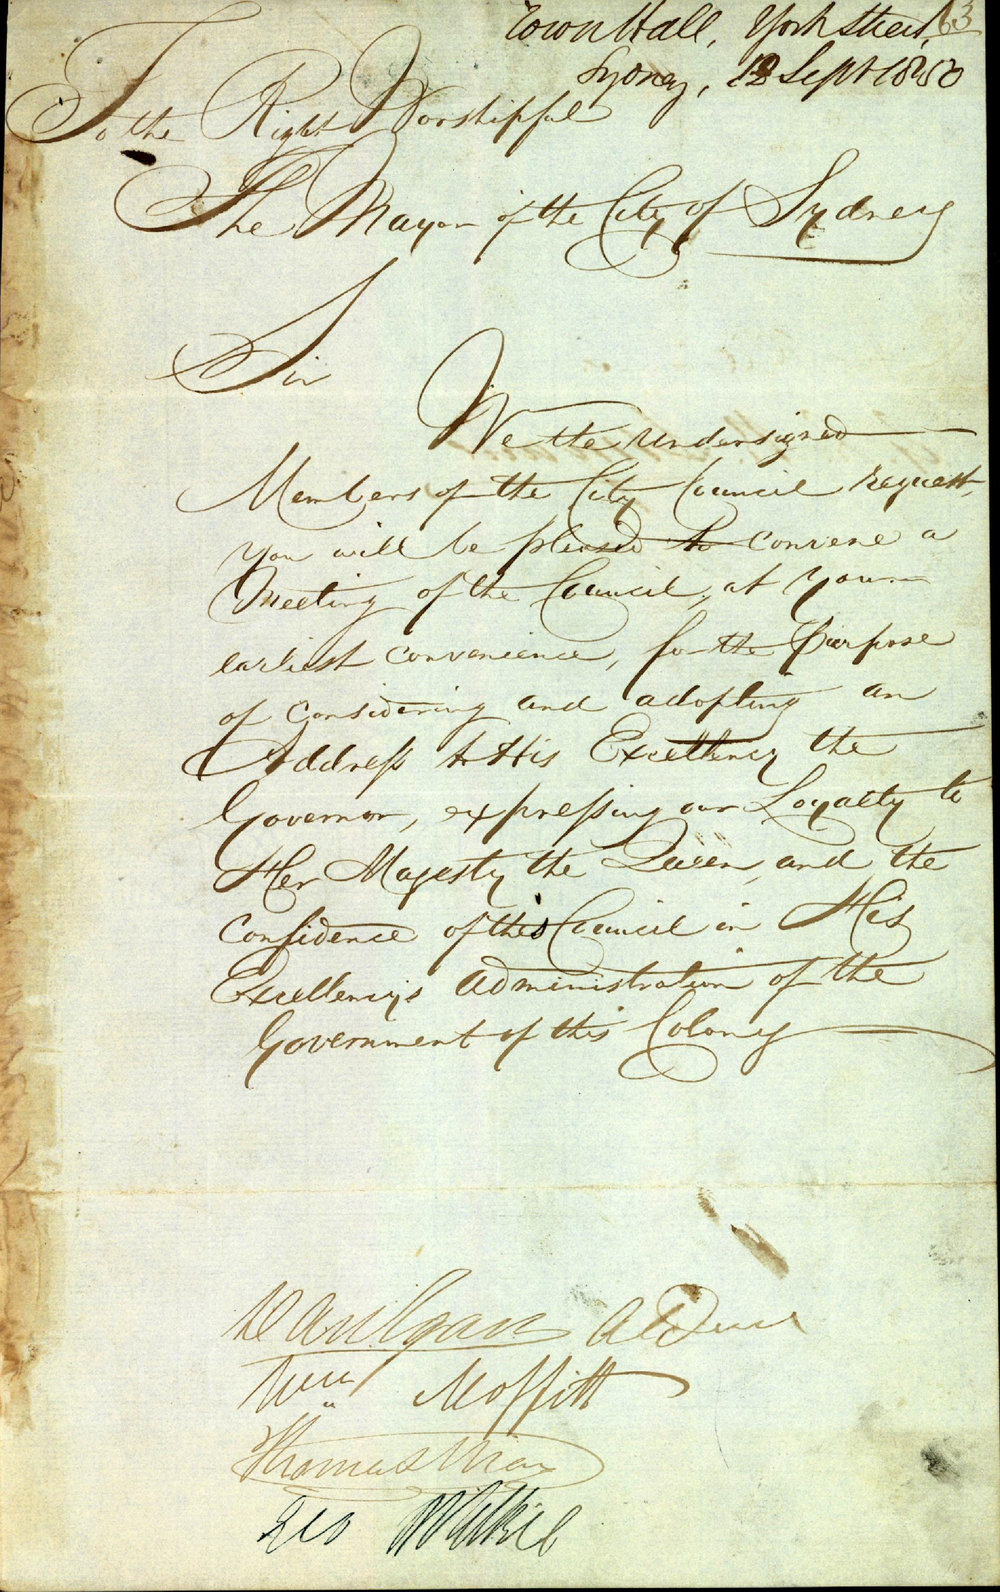 63
Town Hall, York Street,
Sydney, 12 Sept 1850
To the Right Worshipful
The Mayor of the City of Sydney
Sir
We the undersigned
Members of the City Council request,
you will be pleased to convene a
Meeting of the Council, at your
earliest convenience, for the purpose
of considering and adopting an
Address to His Excellency the
Governor, expressing our Loyalty to
Her Majesty the Queen, and the
Confidence of this Council in His
Excellency's administration of the
Government of this Colony
Dan Egan
Wm Moffitt
Thomas May
Geo Wilkie